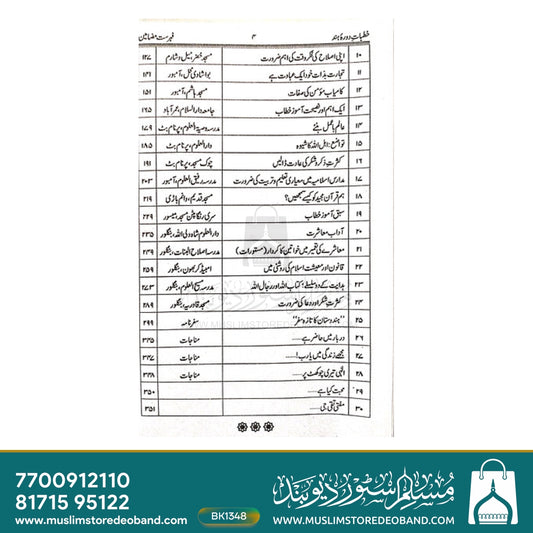 خطباتِ دورۂ ہند ۴ فہرست مضامین
۱۰ اپنی اصلاح کی فکر وقت کی اہم ضرورت مسجد خضر، میل وشارم ۱۲۷
۱۱ تجارت بذات خود ایک عبادت ہے بوا شادی محل، آمبور ۱۴۱
۱۲ کامیاب مؤمن کی صفات مسجد ہاشم، آمبور ۱۵۱
۱۳ ایک اہم اور نصیحت آموز خطاب جامعہ دار السلام، عمر آباد ۱۶۵
۱۴ عالم باعمل بنئے مدرسہ العلوم، پرنام بٹ ۱۷۹
۱۵ تواضع: اہل اللہ کا شیوہ دار العلوم، پرنام بٹ ۱۸۵
۱۶ کثرتِ ذکر و شکر کی عادت ڈالیں چوک مسجد، پرنام بٹ ۱۹۱
۱۷ مدارس اسلامیہ میں معیاری تعلیم وتربیت کی ضرورت مدرسہ رفیق العلوم، آمبور ۲۰۳
۱۸ ہم قرآن مجید کو کیسے سمجھیں؟ مسجد قدیم، وانم باڑی ۲۱۹
۱۹ سبق آموز خطاب سری رنگا پٹن، میسور ۲۲۹
۲۰ آداب معاشرت دار العلوم شاہ ولی اللہ، بنگلور ۲۳۵
۲۱ معاشرے کی تعمیر میں خواتین کا کردار (مستورات) مدرسہ اصلاح البنات، بنگلور ۲۴۹
۲۲ قانون اور معیشت اسلام کی روشنی میں امبیڈکر بھون، بنگلور ۲۵۹
۲۳ ہدایت کے دو سلسلے: کتاب اللہ اور رجال اللہ مدرسہ مسیح العلوم، بنگلور ۲۷۳
۲۴ کثرتِ شکر اور دعا کی ضرورت مسجد قادریہ، بنگلور ۲۸۹
۲۵ "ہندوستان کا تازہ سفر" سفرنامہ ۲۹۹
۲۶ دربار میں حاضر ہے مناجات ۳۳۵
۲۷ مجھے زندگی میں یارب!— مناجات ۳۳۷
۲۸ الٰہی تیری چوکھٹ پر— مناجات ۳۳۸
۲۹ محبت کیا ہے— ۳۵۰
۳۰ مفتی تقی جی— ۳۵۱
WWW.MUSLIMSTOREDEOBAND.COM
7700912110
81715 95122
www.muslimstoredeoband.com
BK1348
مسلم سٹور دیوبند
WWW.MUSLIMSTOREDEOBAND.COM